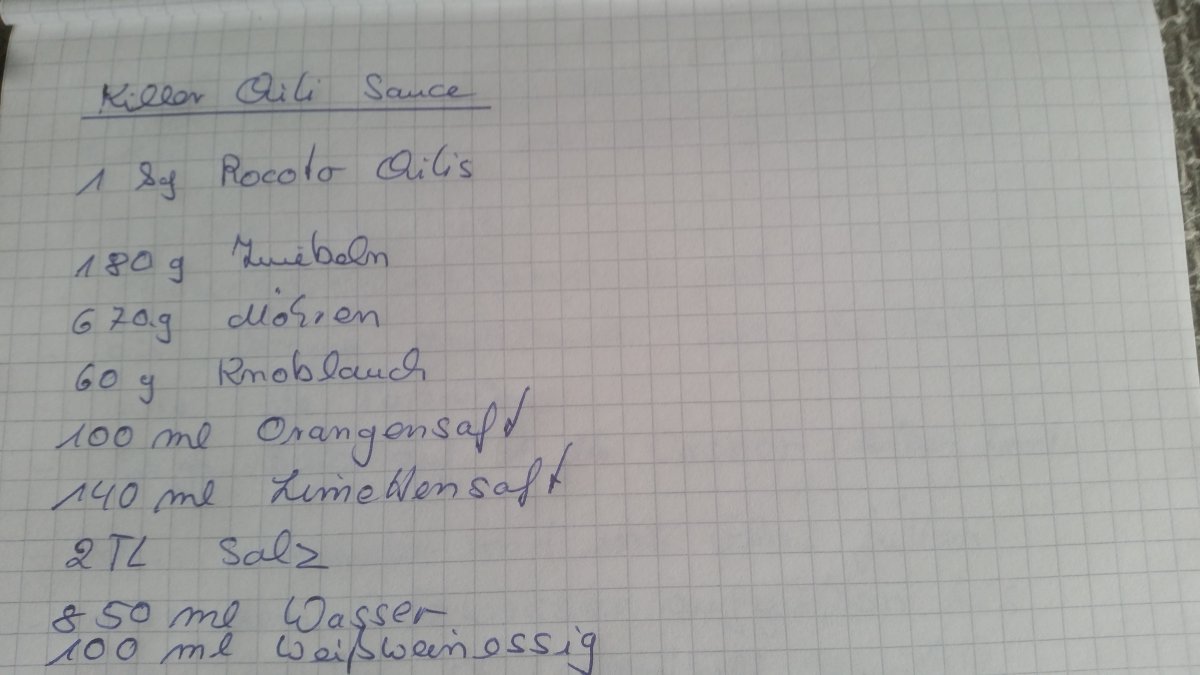 Killer Chili Sauce
1 kg Rocoto Chilis
180 g Zwiebeln
670 g Möhren
60 g Knoblauch
100 ml Orangensaft
140 ml Limettensaft
2 TL Salz
850 ml Wasser
100 ml Weißweinessig